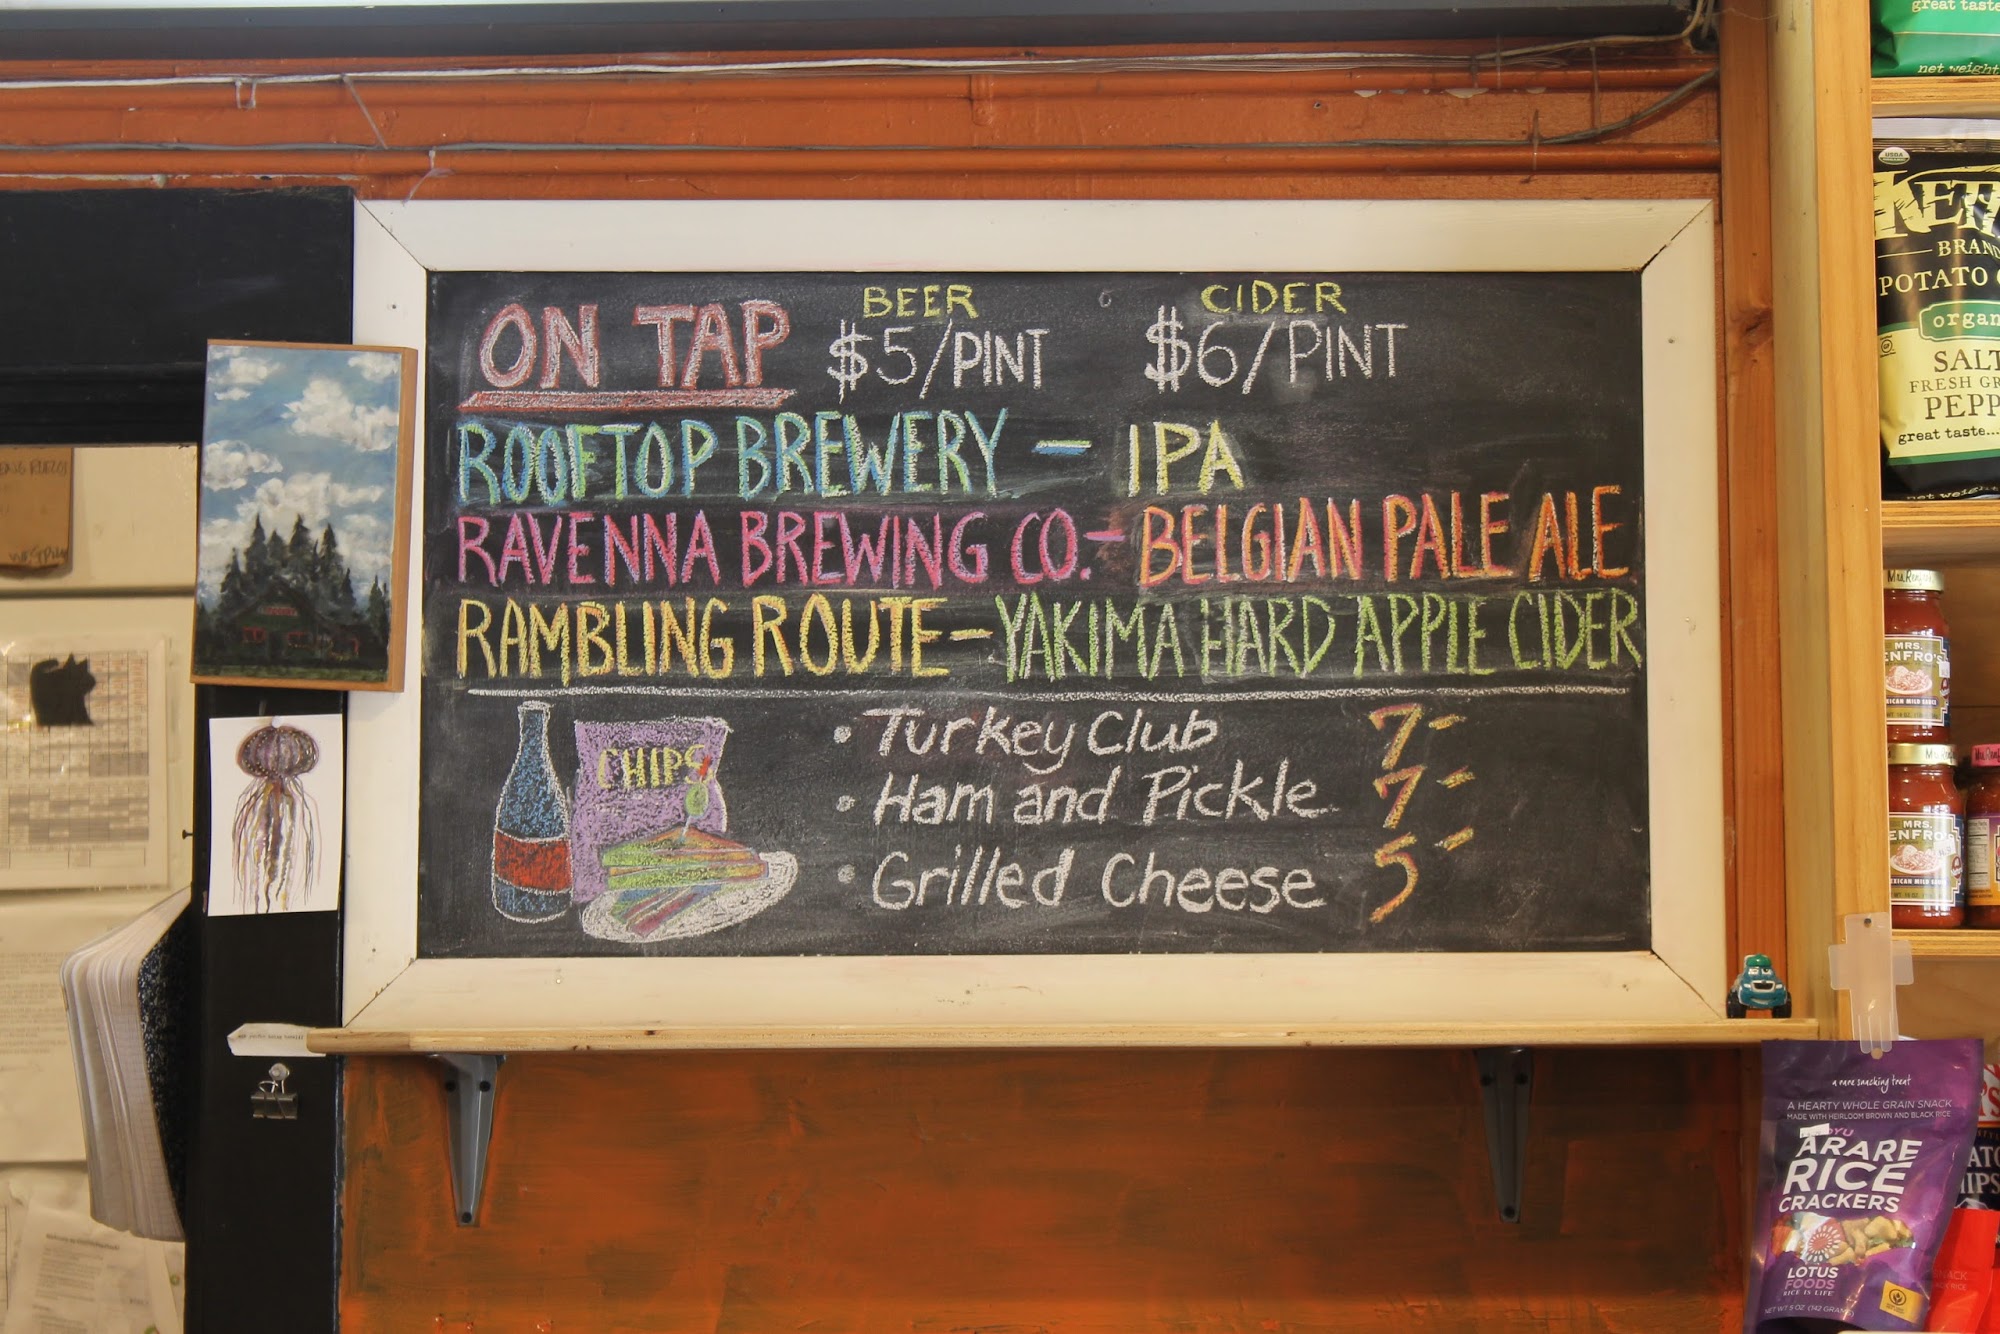 ON TAP
BEER
$5/PINT
CIDER
$6/PINT
ROOFTOP BREWERY - IPA
RAVENNA BREWING CO. - BELGIAN PALE ALE
RAMBLING ROUTE - YAKIMA HARD APPLE CIDER
CHIPS
• Turkey Club 7-
• Ham and Pickle 7-
• Grilled Cheese 5-
great taste
net weight
USDA
BRAND
POTATO
SALT
FRESH
great taste...
net weight
MRS.
MRS.
a rare snacking treat
A HEARTY WHOLE GRAIN SNACK
MADE WITH HEIRLOOM BROWN AND BLACK RICE
ARARE
RICE
CRACKERS
LOTUS
FOODS
RICE IS LIFE
NET WT 5 OZ (142 GRAMS)